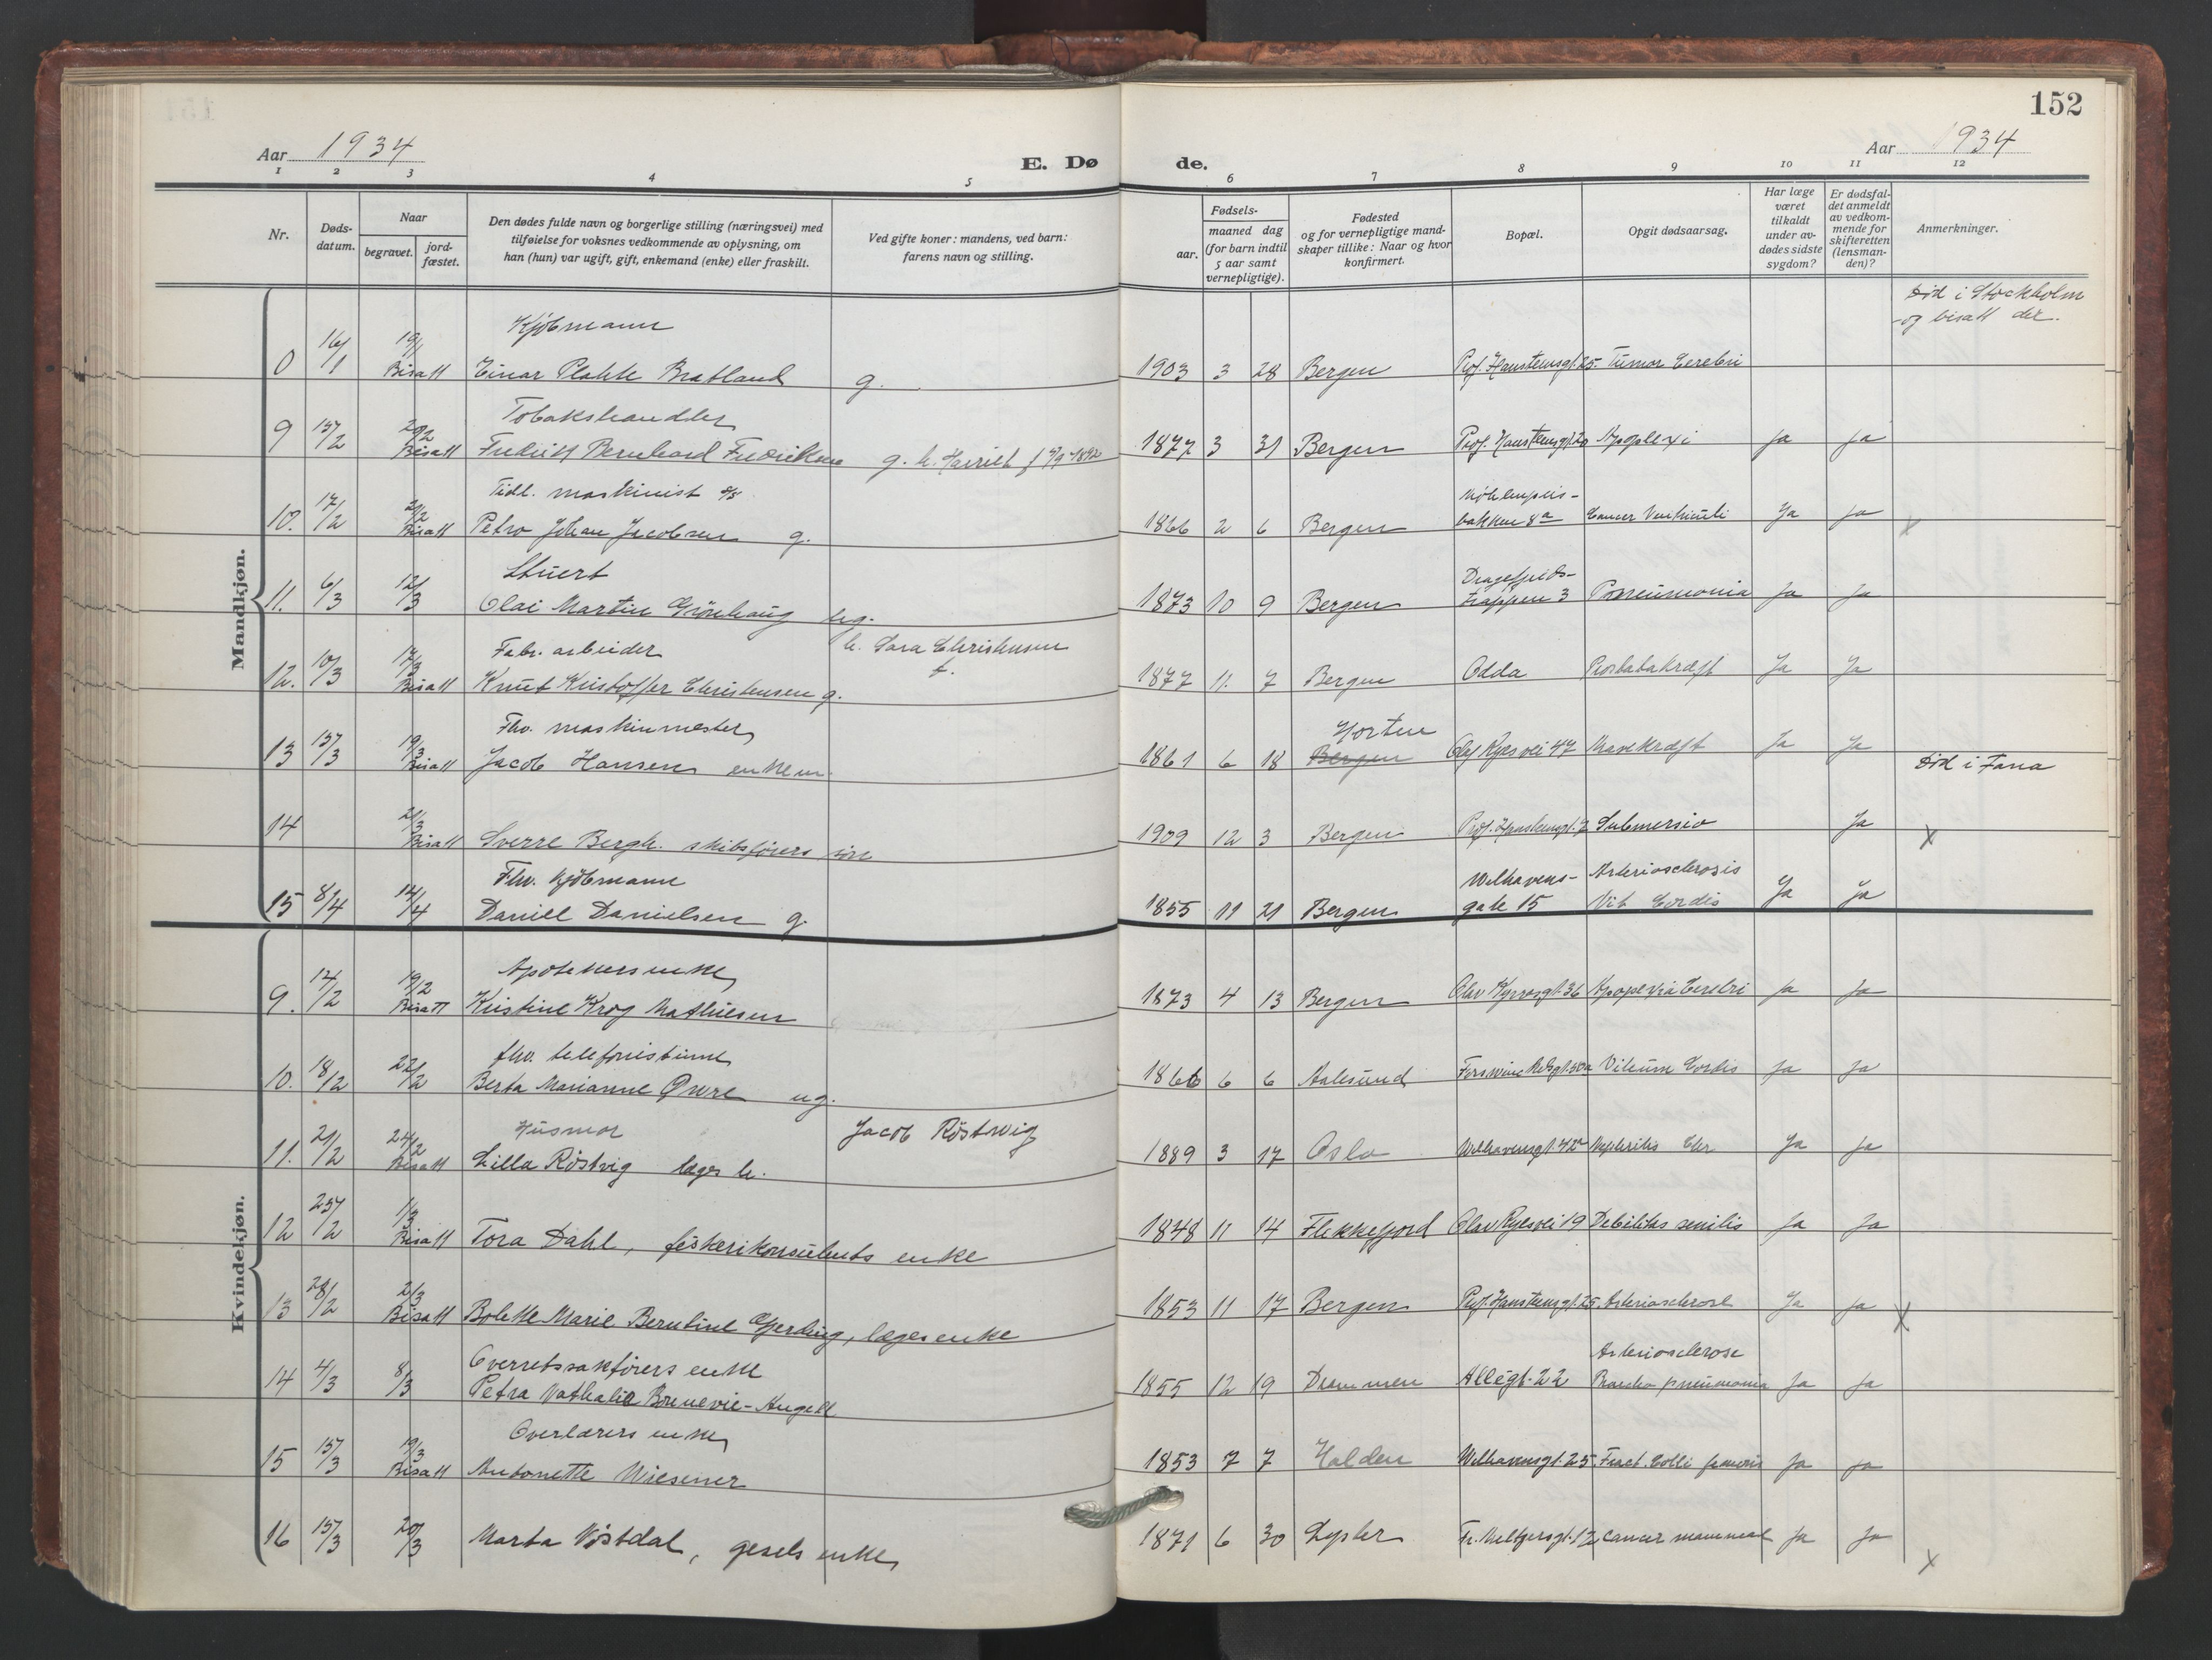 152
Aar 1934
E. Døde.
Aar 1934
1 2 3 4 5 6 7 8 9 10 11 12
Nr.
Døds-
datum.
Naar
begravet.
jord-
fæstet.
Den dødes fulde navn og borgerlige stilling (næringsvei) med
tilføielse for voksnes vedkommende av oplysning, om
han (hun) var ugift, gift, enkemand (enke) eller fraskilt.
Ved gifte koner: mandens, ved barn:
farens navn og stilling.
Fødsels-
aar.
maaned dag
(for barn indtil
5 aar samt
vernepligtige).
Fødested
og for vernepligtige mand-
skaper tillike: Naar og hvor
konfirmert.
Bopæl.
Opgit dødsaarsag.
Har læge
været
tilkaldt
under av-
dødes sidste
sygdom?
Er dødsfal-
det anmeldt
av vedkom-
mende for
skifteretten
(lensman-
den)?
Anmerkninger.
Mandkjøn.
Kjøbmann
Død i Stockholm
og bisatt der.
0 16/1 19/1 Bisatt Einar Bratland g. 1903 3 28 Bergen Prof. Hansteensgt. 25. Tumor Cerebri
Tobakshandler
9 15/2 20/2 Bisatt Fredrik Bernhard Fredriksen g. m. Harriet f 1892 1877 3 31 Bergen Prof. Hansteensgt. 20 Apoplexi Ja Ja
Tidl. maskinist
10. 17/2 21/2 Bisatt Petro Johan Jacobsen g. 1866 2 6 Bergen Møhlenpris-
bakken 8a Cancer Ventriculi Ja Ja x
Stuert
11. 6/3 12/3 Olai Martin Grönhaug ug. 1873 10 9 Bergen Dragefjelds-
trappen 3 Pneumonia Ja Ja
Fabr. arbeider h. Sara Christensen
f.
12. 10/3 17/3 Bisatt Knut Kristoffer Christensen g. 1877 11. 7 Bergen Odda Prostatakræft Ja Ja
Fhv. maskinmester Horten
13 15/3 19/3 Bisatt Jacob Hansen enkem. 1861 6 18 Bergen Olaf Ryes vei 47 Mavekræft Ja Ja
Død i Fana
14 21/3 Bisatt Sverre Bergh. skibsførers søn 1909 12 3 Bergen Prof. Hansteensgt. 7 Submersio Ja x
Fhv. Kjøbmann
15 8/4 14/4 Daniel Danielsen g. 1855 11 21 Bergen Welhavens-
gate 15 Arteriosclerosis
Vit. Cordis Ja Ja
Kvindekjøn.
Apotekers enke
9. 14/2 19/2 Bisatt Kristine Krog Mathiesen 1873 4 13 Bergen Olav Kyrresgt. 36 Apopexia Cerebri Ja Ja
fhv. telefonistinne
10. 18/2 22/2 Berta Marianne Qvore ug. 1866 6 6 Aalesund Vitium Cordis Ja Ja
Husmor Jacob Röstvig
11. 21/2 24/2 Bisatt Lilla Röstvig læges h. 1889 3 17 Oslo Welhavensgt. 42a Nephritis Chr Ja Ja
12 25/2 1/3 Bisatt Tora Dahl, fiskerikonsulents enke 1848 11 14 Flekkefjord Olav Ryesvei 19 Debilitas senilis Ja Ja
13 28/2 2/3 Bisatt Bolette Marie Berntine Gjerding, læges enke 1853 11 17 Bergen Prof. Hansteensgt. 25. Arteriosclerose Ja Ja x
14 4/3 8/3 Overretssakførers enke
Petra Nathalie Brunevie-Angell 1855 12 19 Drammen Allégt. 22 Arteriosclerose
Broncho pneumonia Ja Ja
Overlærers enke
15 15/3 19/3 Bisatt Antonette Wiesener 1853 7 7 Halden Welhavensgt. 25. Fract. Colli femoris Ja Ja
16 15/3 20/3 Marta Vøstdal, gesels enke 1871 6 30 Lyster Fr. Meltzersgt. 12 Cancer mammae Ja Ja x